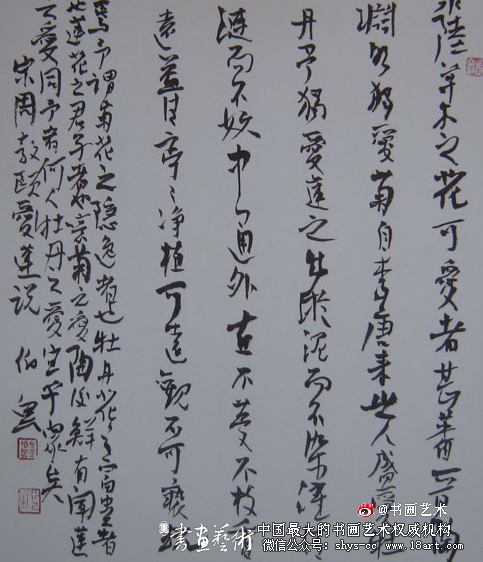 水陸草木之花可愛者甚蕃晉陶
淵明獨愛菊自李唐来世人盛愛牡
丹予獨愛蓮之出淤泥而不染濯清
漣而不妖中通外直不蔓不枝香
遠益清亭〻净植可遠觀不可褻玩
焉予謂菊花之隱逸者也牡丹花之富貴者
也蓮花之君子者也噫菊之愛陶後鮮有聞蓮
之愛同予者何人牡丹之愛宜乎衆矣
宋周敦頤愛蓮説 伯
@书画艺术
書畫藝術 中国最大的书画艺术权威机构
微信公众号：shys--cc，www.18art.com